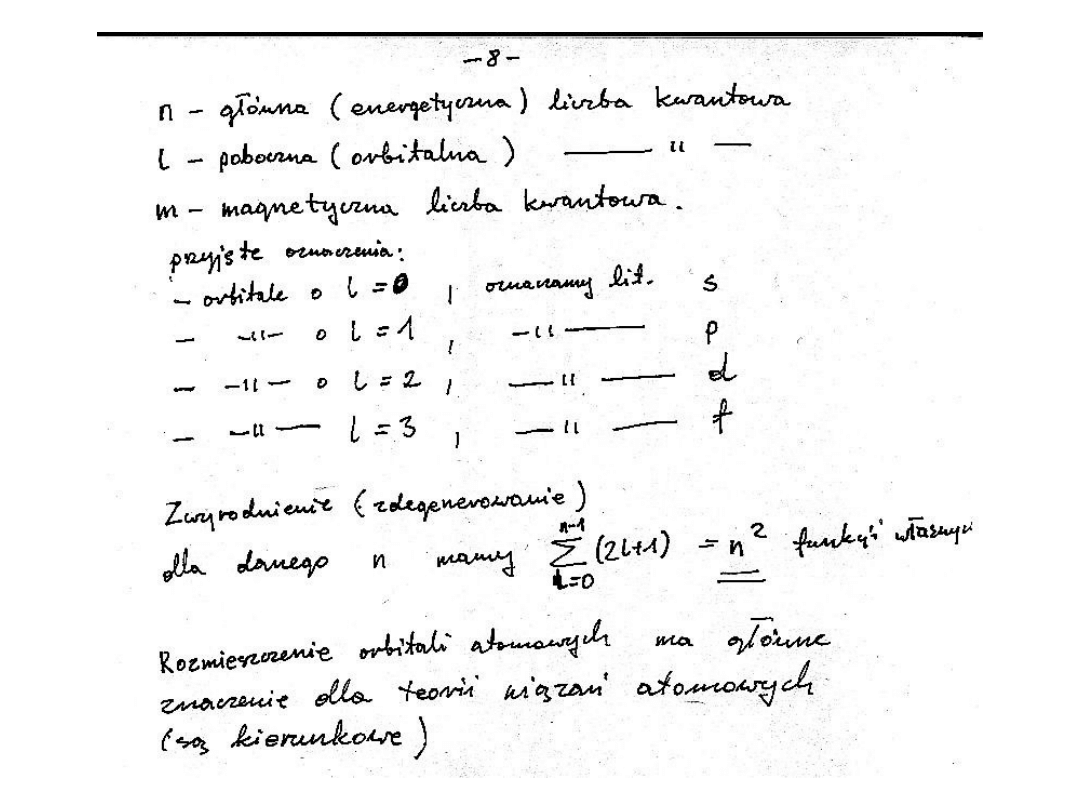 -8-
n - główna (energetyczna) liczba kwantowa
l - poboczna (orbitalna) —— " —
m - magnetyczna liczba kwantowa.
przyjęte oznaczenia:
- orbitale o l = 0, oznaczamy lit. s
- -"- o l = 1, -"—— p
- -"- o l = 2, —" —— d
- -"— l = 3, —" —— f
Zwyrodnienie (zdegenerowanie)
dla danego n mamy \sum_{l=0}^{n-1} (2l+1) = n² funkcji własnych
Rozmieszczenie orbitali atomowych ma główne
znaczenie dla teorii wiązań atomowych
(są kierunkowe)